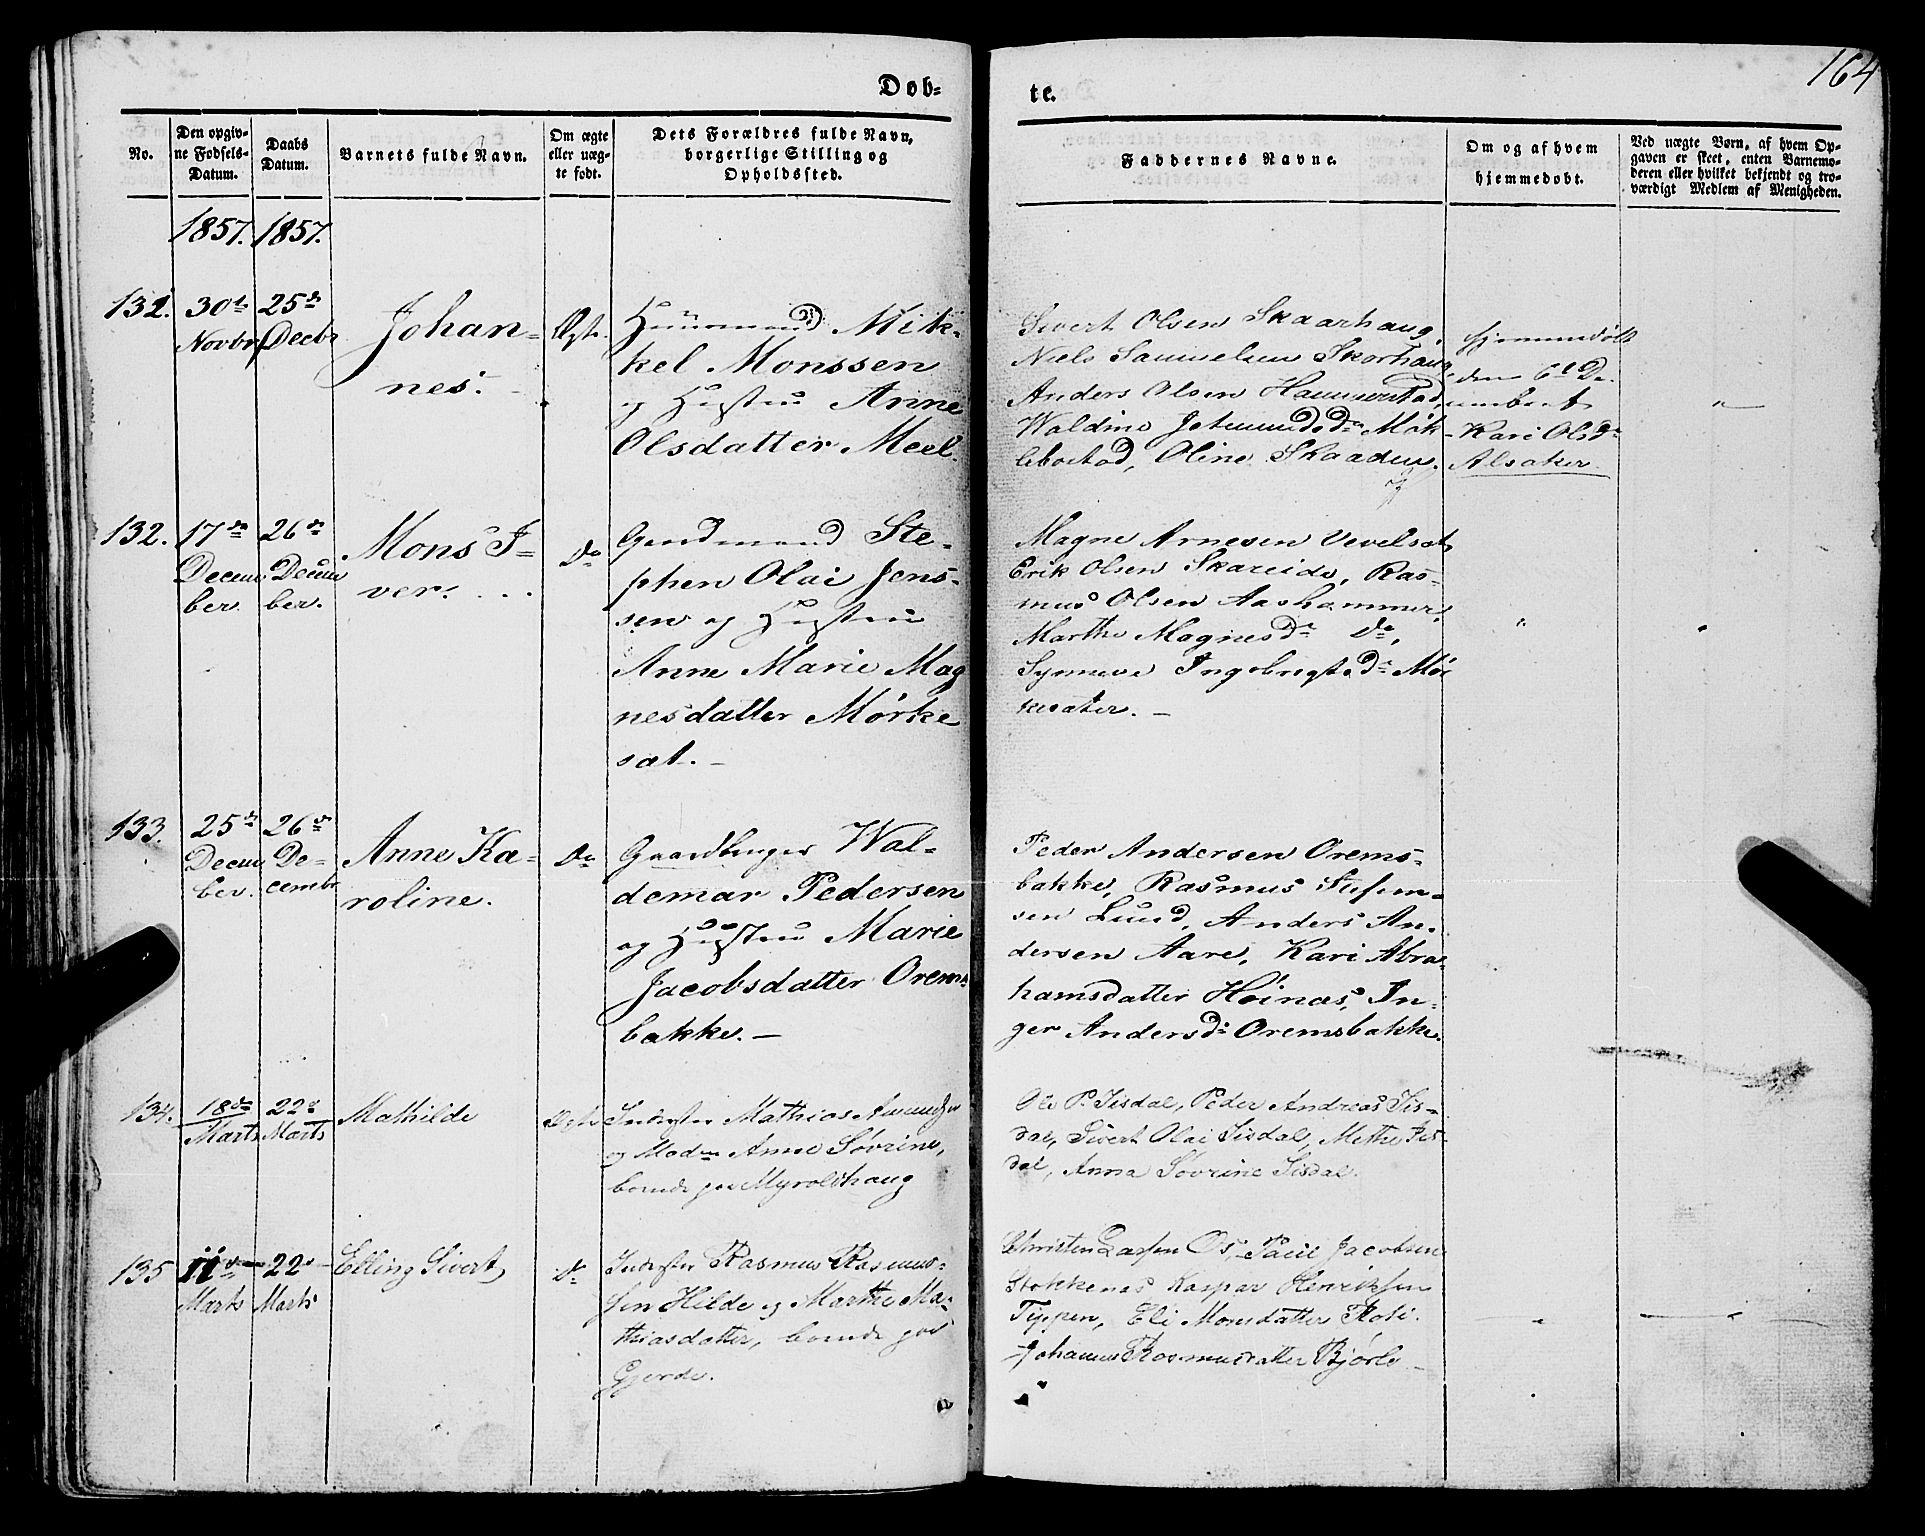 164
Døb=
te.
No.
Den opgiv-
ne Fødsels-
Datum.
Daabs
Datum.
Barnets fulde Navn.
Om ægte
eller uæg-
te født.
Dets Forældres fulde Navn,
borgerlige Stilling og
Opholdssted.
Faddernes Navne.
Om og af hvem
hjemmedøbt.
Ved uægte Børn, af hvem Op-
gaven er skeet, enten Barnemo-
deren eller hvilket bekjendt og tro-
værdigt Medlem af Menigheden.
1857.
1857.
131.
30te
Novbr
25de
Decbr
Johan=
nes.
Ægte.
Huusmand Mik-
kel Monssen
og Hustru Anne
Olsdatter Meel.
Sivert Olsen Skaarhaug,
Niels Samuelsen Skorhaug,
Anders Olsen
Waldine Møk-
lebostad, Oline Skaaden.
Hjemmedøbt
den 6t De-
cember af
Kari Olsdr
Alsaker.
132.
17de
Decem
ber.
26de
Decem
ber.
Mons I=
ver. ...
Do
Gardmand Ste-
phen Olai Jens-
sen og Hustru
Anne Marie Mag
nesdatter Mørke
sæt. -
Magne Arnesen
Erik Olsen Skareide, Ras-
mus Olsen Aashammer,
Marthe Magnesdr Do,
Synneve Ingebrigtsdr Mør
kesæter. -
133.
25de
Decem
ber.
26de
De-
cembr
Anne Ka-
roline.
Do
Gaardbruger Wal-
demar Pedersen
og Hustru Marie
Jacobsdatter Orems
bakke. -
Peder Andersen Orems-
bakke, Rasmus Stefen-
sen Lund, Anders An-
dersen Aare, Kari Abra-
hamsdatter Høinæs, In-
ger Andersdr Oremsbakke.
134.
18de
Marts
22de
Marts
Mathilde
Ægte
Inderster Mathias Amundsen
og Mad. Anne Søvrine,
boende paa Myroldhaug
Ole P. Sisdal, Peder Andreas Sis-
dal, Sivert Olai Sisdal, Methe Sis-
dal, Anna Søvrine Sisdal.
135
11de
Marts
22de
Marts
Elling Sivert,
Do
Inderster Rasmus Rasmus-
sen Hilde og Marthe Ma-
thiasdatter, boende paa
Gjerde.
Christen Larsen Os, Paul Jacobsen
Stokkenæs Kaspar Henriksen
Tippen, Eli Monsdatter
Johanne Rasmusdatter Bjørlo